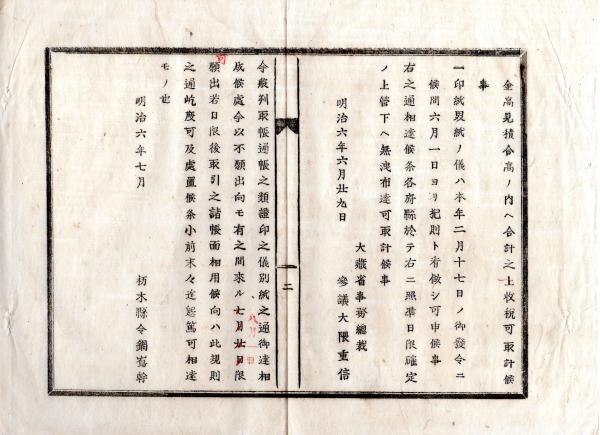 金高見積合高ノ内ヘ合計之上收税可取計候
事
一印紙界紙ノ儀ハ本年二月十七日ノ御發令ニ
候間六月一日ヨリ犯則ト看做シ可申候事
右之通相達候条各府縣於テ右ニ照準日限確定
ノ上管下ヘ無洩布達可取計候事
明治六年六月廿九日
大藏省事務總裁
參議大隈重信
二
今般判取帳通帳之類證印之儀別紙之通御達相
成候處今以不願出向モ有之間來ル七月廿日限
可
八月
日
願出若日限後取引之諸帳面相用候向ハ此規則
之通屹度可及處置候条小前末々迄懇篤可相達
モノ也
明治六年七月
栃木縣令鍋嶌幹